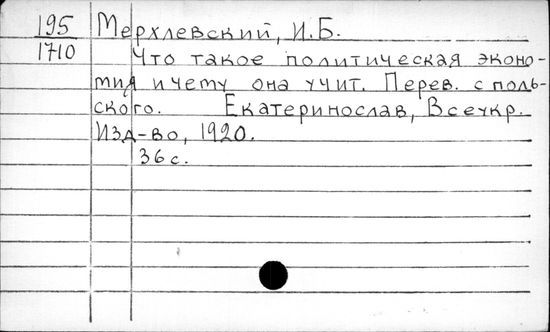 195 Мерхлевский, И.Б.
1710 Что такое политическая эконо-
мия и чему она учит. Перев. с поль-
ского. Екатеринослав, Всеукр.
Изд-во, 1920.
36 с.